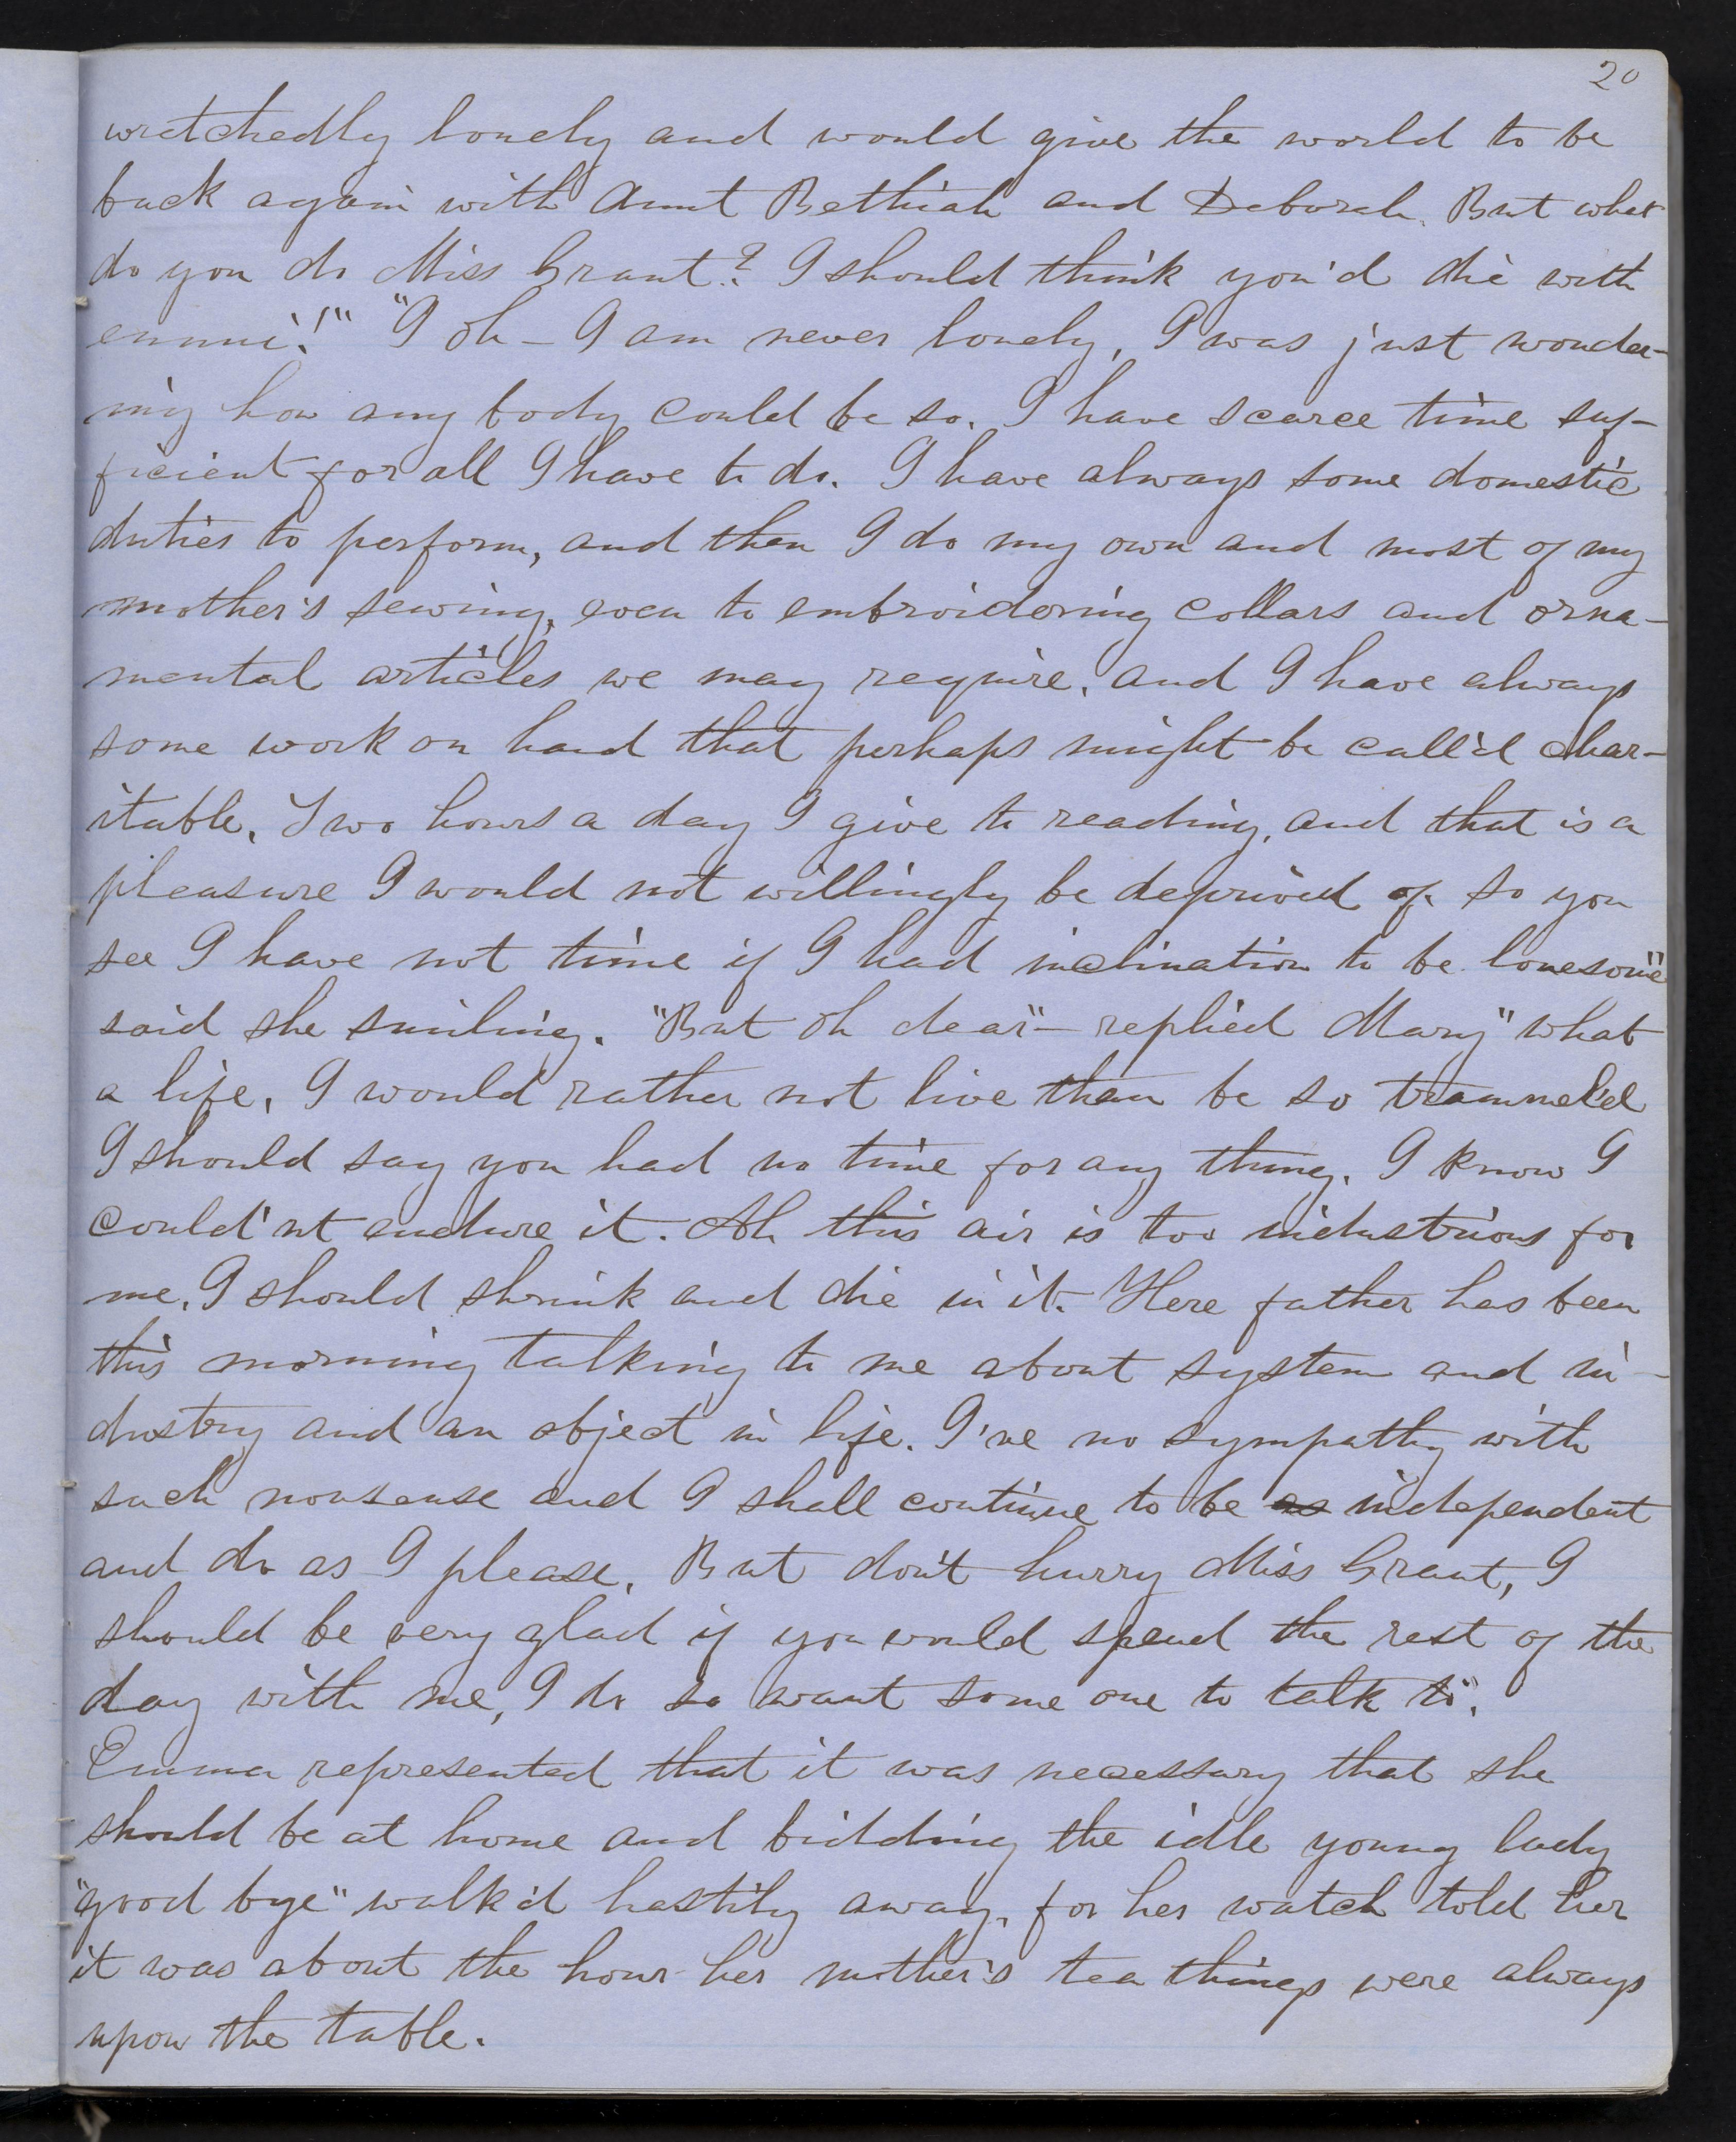 20
wretchedly lonely and would give the world to be
back again with Aunt Bethiah and Deborah. But what
do you do Miss Grant? I should think you'd die with
ennui!" "I oh – I am never lonely, I was just wonder-
ing how any body could be so. I have scarce time suf-
ficient for all I have to do. I have always some domestic
duties to perform, and then I do my own and most of my
mother's sewing, even to embroidering collars and orna-
mental articles we may require, and I have always
some work on hand that perhaps might be call'd char-
itable. Two hours a day I give to reading, and that is a
pleasure I would not willingly be deprived of. So you
see I have not time if I had inclination to be lonesome"
said she smiling. "But oh dear" – replied Mary "what
a life, I would rather not live than be so trammel'd
I should say you had no time for any thing. I know I
could'nt endure it. Ah this air is too industrious for
me. I should shrink and die in it. Here father has been
this morning talking to me about system and in-
dustry and an object in life. I've no sympathy with
such nonsense and I shall continue to be as independent
and do as I please. But don't hurry Miss Grant, I
should be very glad if you would spend the rest of the
day with me, I do so want some one to talk to".
Emma represented that it was necessary that she
should be at home and bidding the idle young lady
"good bye" walk'd hastily away, for her watch told her
it was about the hour her mother's tea things were always
upon the table.